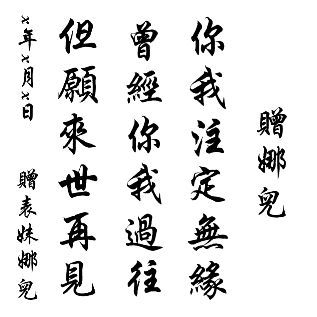 贈娜兒
你我注定無緣
曾經你我過往
但願來世再見
x年x月x日
贈表妹娜兒